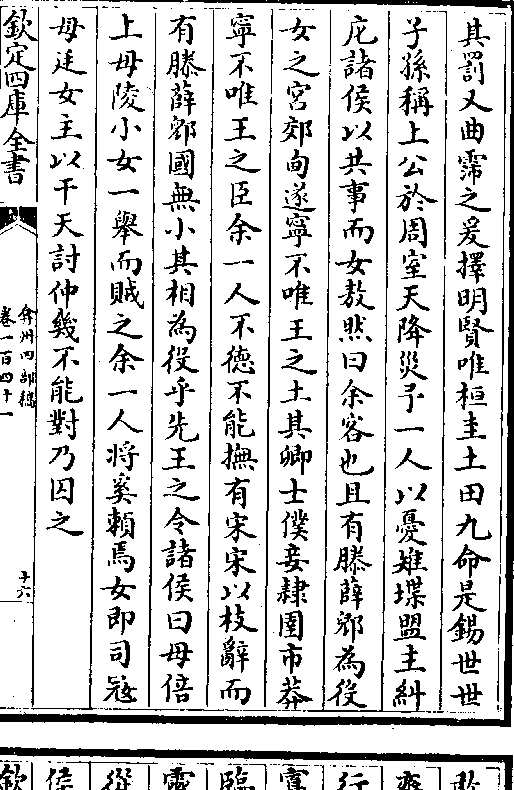 其罰又曲霈之爰擇明賢唯桓圭土田九命是錫世世
子孫稱上公於周室天降災予一人以憂雉堞盟主糾
庀諸侯以共事而女敖然曰余客也且有滕薛郳為役
女之宮郊甸遂寧不唯王之土其卿士僕妾隷圉市莽
寧不唯王之臣余一人不德不能撫有宋宋以枝辭而
有滕薛郳國無小其相為役乎先王之令諸侯曰毋倍
上毋陵小女一舉而賊之余一人將奚賴焉女即司寇
毋廷女主以干天討仲幾不能對乃囚之
欽定四庫全書
弇州四部稿
卷一百四十一
十六